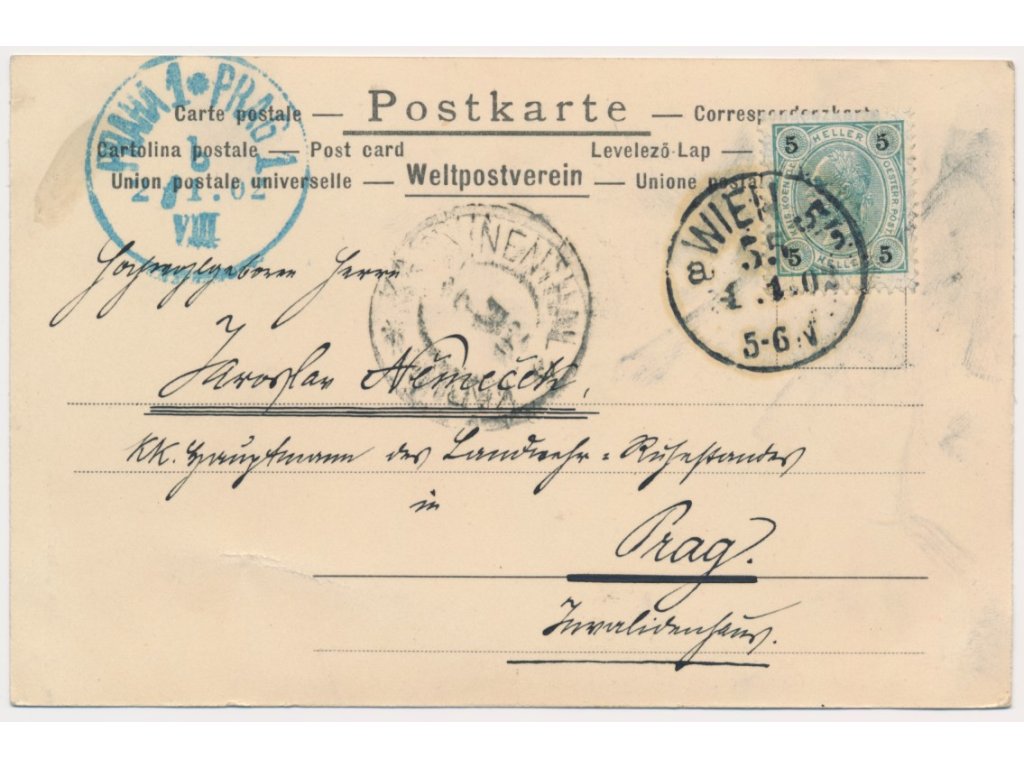 PRAHA 1 * PRAG 1
b
2 1. 02
VIII
Carte postale — Postkarte — Correspondenzkarte
Cartolina postale — Post card
Levelező-Lap —
Union postale universelle — Weltpostverein — Unione postale
5 HELLER 5
OESTERR. POST
5 HELLER 5
WIEN 55
55
a
1. 1. 02
5-6. V
Hochwohlgeboren Herrn
Jaroslav Němeček,
KK. Hauptmann des Landwehr-Ruhestandes
in
Prag.
Invalidenhaus.